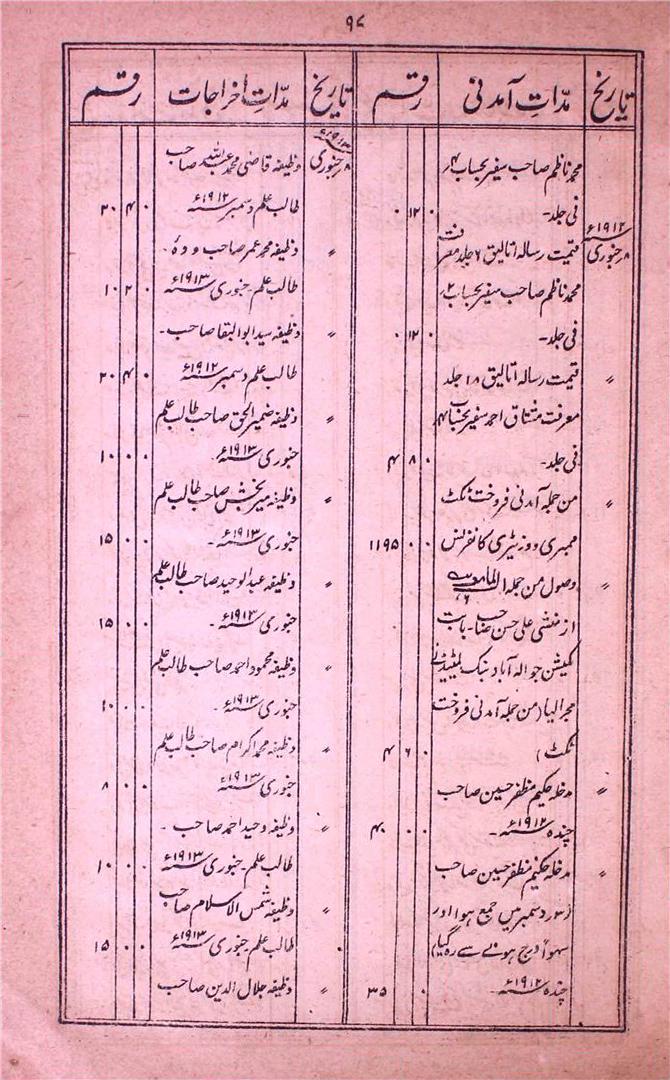 ۹۸
تاریخ مدّاتِ آمدنی رقم
محمد ناظم صاحب سفیر بحساب ۲؍
فی جلد۔ ۰ ۱۲ ۰
۱۹۱۲ء
۸؍جنوری قیمت رسالہ اتالیق ۶ جلد معرفت
محمد ناظم صاحب سفیر بحساب ۲؍
فی جلد۔ ۰ ۱۲ ۰
〃 قیمت رسالہ اتالیق ۱۸ جلد
معرفت مشتاق احمد سفیر بحساب ۴؍
فی جلد۔ ۰ ۸ ۴
〃 من جملہ آمدنی فروخت ٹکٹ
ممبری و وزیٹری کانفرنس ۰ ۰ ۱۱۹۵
〃 وصول من جملہ
از منشی علی حسن صاحب بابت
کمیشن جو الہ آباد بنک لمیٹیڈ نے
مجرا لیا (من جملہ آمدنی فروخت
ٹکٹ) ۰ ۶ ۴
〃 مدخلہ حکیم مظفر حسین صاحب
چندہ ۱۹۱۲ء۔ ۰ ۰ ۴۰
〃 مدخلہ حکیم مظفر حسین صاحب
(۳؍ دسمبر میں جمع ہوا اور
سہواً درج ہونے سے رہ گیا)
چندہ ۱۹۱۲ء۔ ۰ ۳۵
تاریخ مدّاتِ اخراجات رقم
۱۹۱۳ء
۸؍جنوری وظیفہ قاضی محمد عبداللہ صاحب
طالب علم دسمبر ۱۹۱۲ء ۰ ۴ ۲۰
〃 وظیفہ محمد عمر صاحب
طالب علم۔ جنوری ۱۹۱۳ء ۰ ۲ ۱۰
〃 وظیفہ سید ابوالبقا صاحب۔
طالب علم دسمبر ۱۹۱۲ء ۰ ۴ ۲۰
〃 وظیفہ ضمیر الحق صاحب طالب علم
جنوری ۱۹۱۳ء۔ ۰ ۰ ۱۰
〃 وظیفہ میر بخش صاحب طالب علم
جنوری ۱۹۱۳ء۔ ۰ ۰ ۱۵
〃 وظیفہ عبدالوحید صاحب طالب علم
جنوری ۱۹۱۳ء۔ ۰ ۰ ۱۵
〃 وظیفہ محمود احمد صاحب طالب علم
جنوری ۱۹۱۳ء۔ ۰ ۰ ۱۰
〃 وظیفہ محمد اکرام صاحب طالب علم
جنوری ۱۹۱۳ء ۰ ۰ ۸
〃 وظیفہ وحید احمد صاحب۔
طالب علم۔ جنوری ۱۹۱۳ء ۰ ۰ ۱۰
〃 وظیفہ شمس الاسلام صاحب
طالب علم جنوری ۱۹۱۳ء ۰ ۰ ۱۵
〃 وظیفہ جلال الدین صاحب